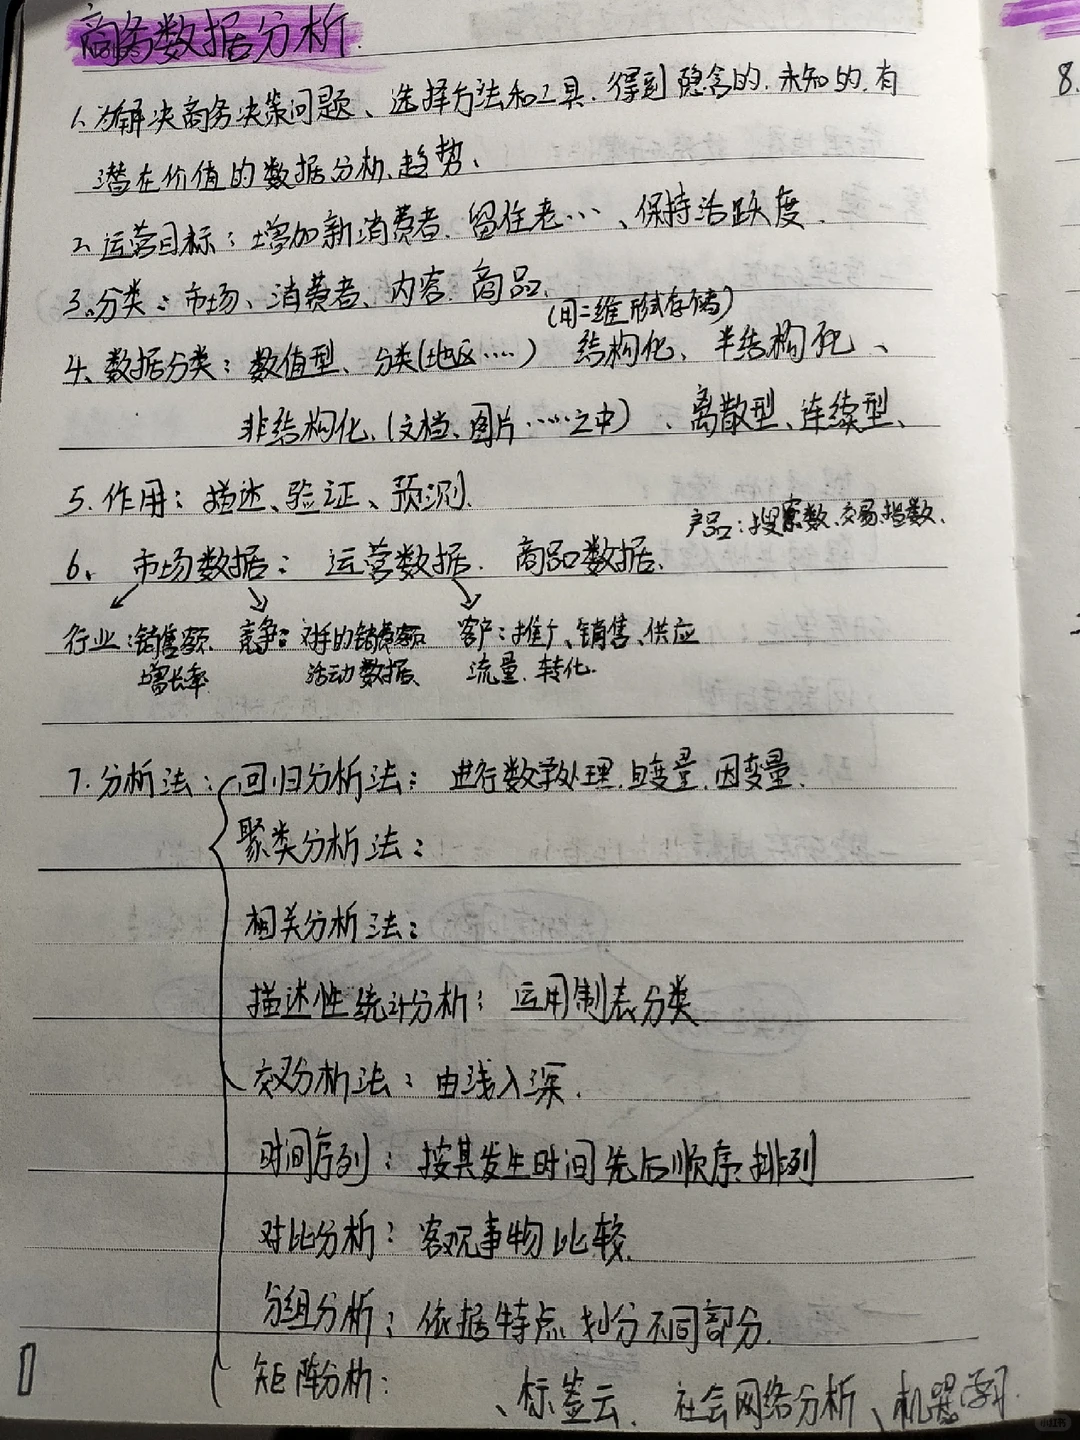 商务数据分析
1、为解决商务决策问题、选择方法和工具.得到隐含的.未知的.有
潜在价值的数据分析.趋势、
2、运营目标：增加新消费者.留住老…、保持活跃度.
3.分类：市场、消费者、内容.商品.
(用二维形式存储)
4、数据分类：数值型、分类(地区…..) 结构化、半结构化、
非结构化.(文档、图片……之中)、离散型、连续型、
5.作用：描述、验证、预测.
产品：搜索数.交易指数、
6、市场数据：运营数据.商品数据.
行业：销售额 竞争：对手的销售额 客户：推广、销售、供应
增长率 活动数据、 流量.转化.
7.分析法：回归分析法：进行数学处理.自变量.因变量.
聚类分析法：
相关分析法：
描述性统计分析：运用制表分类
交叉分析法：由浅入深.
时间序列：按其发生时间先后顺序排列
对比分析：客观事物比较.
分组分析：依据特点划分不同部分.
矩阵分析：
、标签云.社会网络分析、机器学习.
8.
小红书